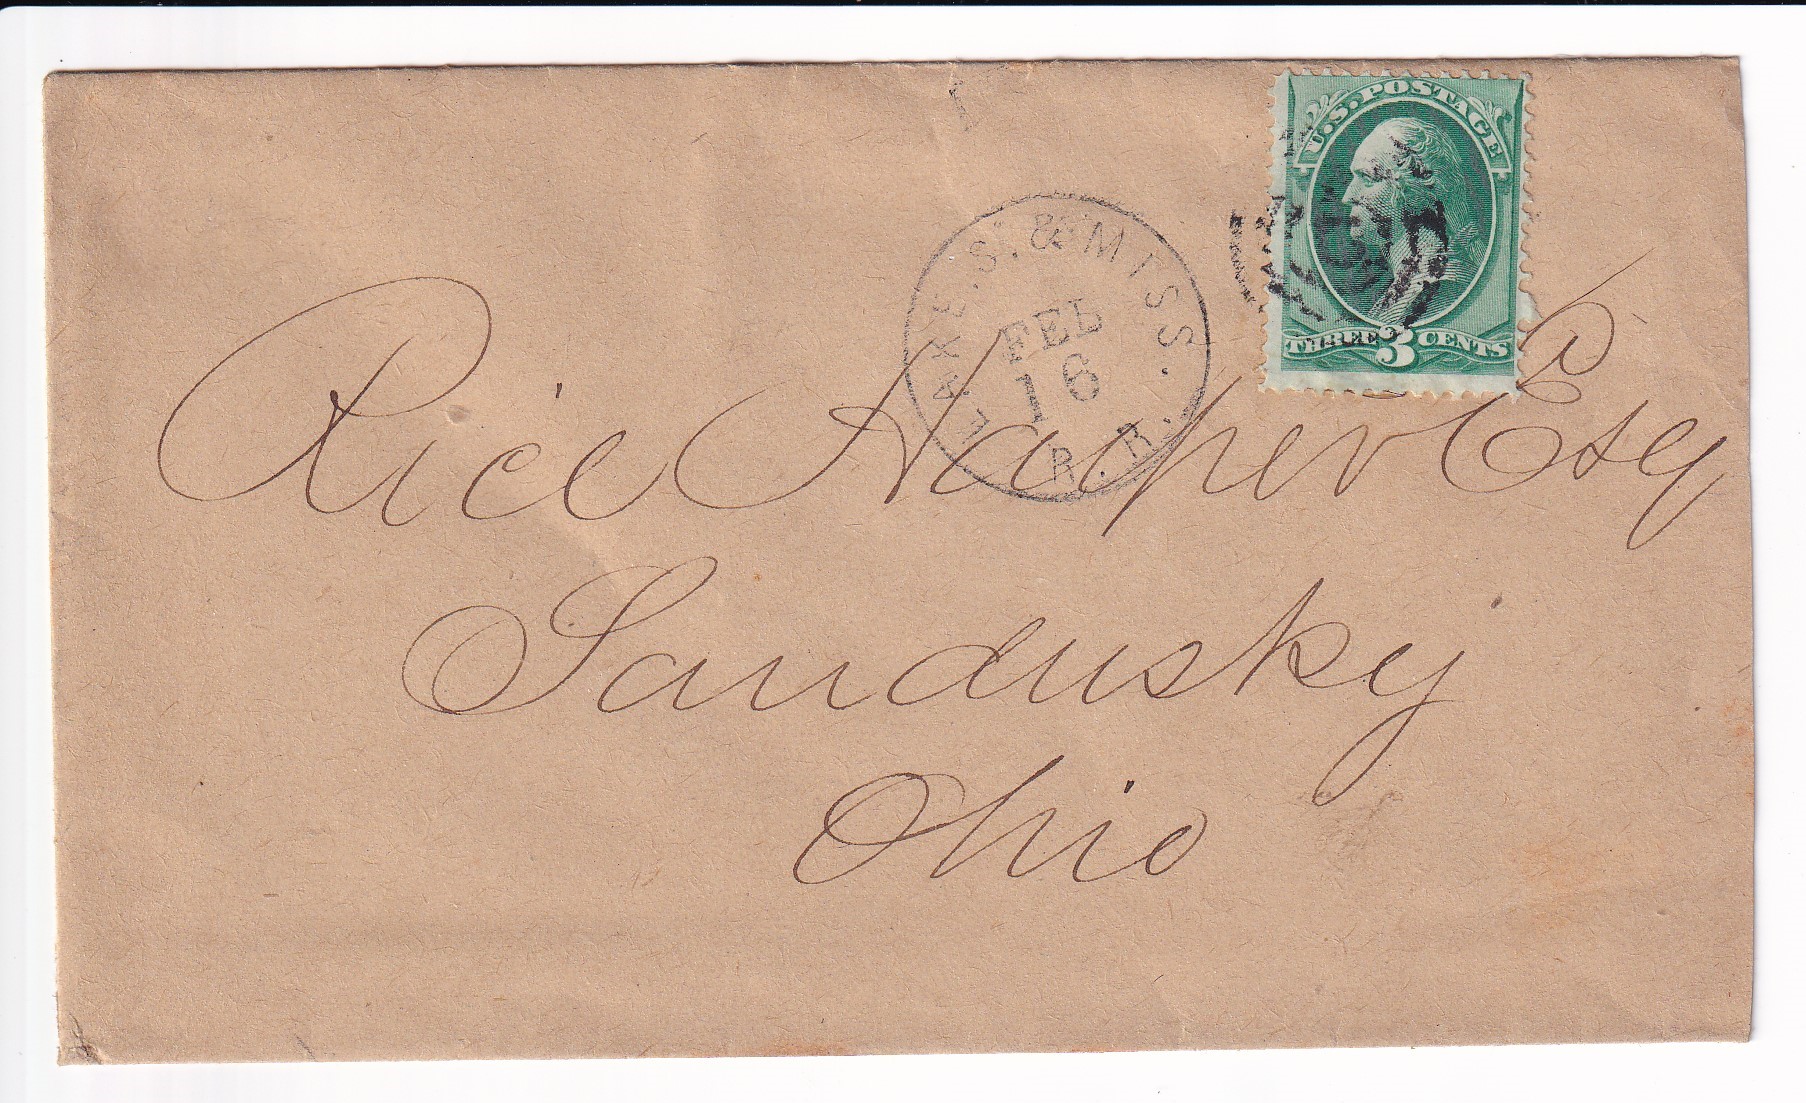 U.S. POSTAGE
THREE 3 CENTS
LAKE. S. & MISS. R. R.
FEB
16
Rice Harper Esq
Sandusky
Ohio